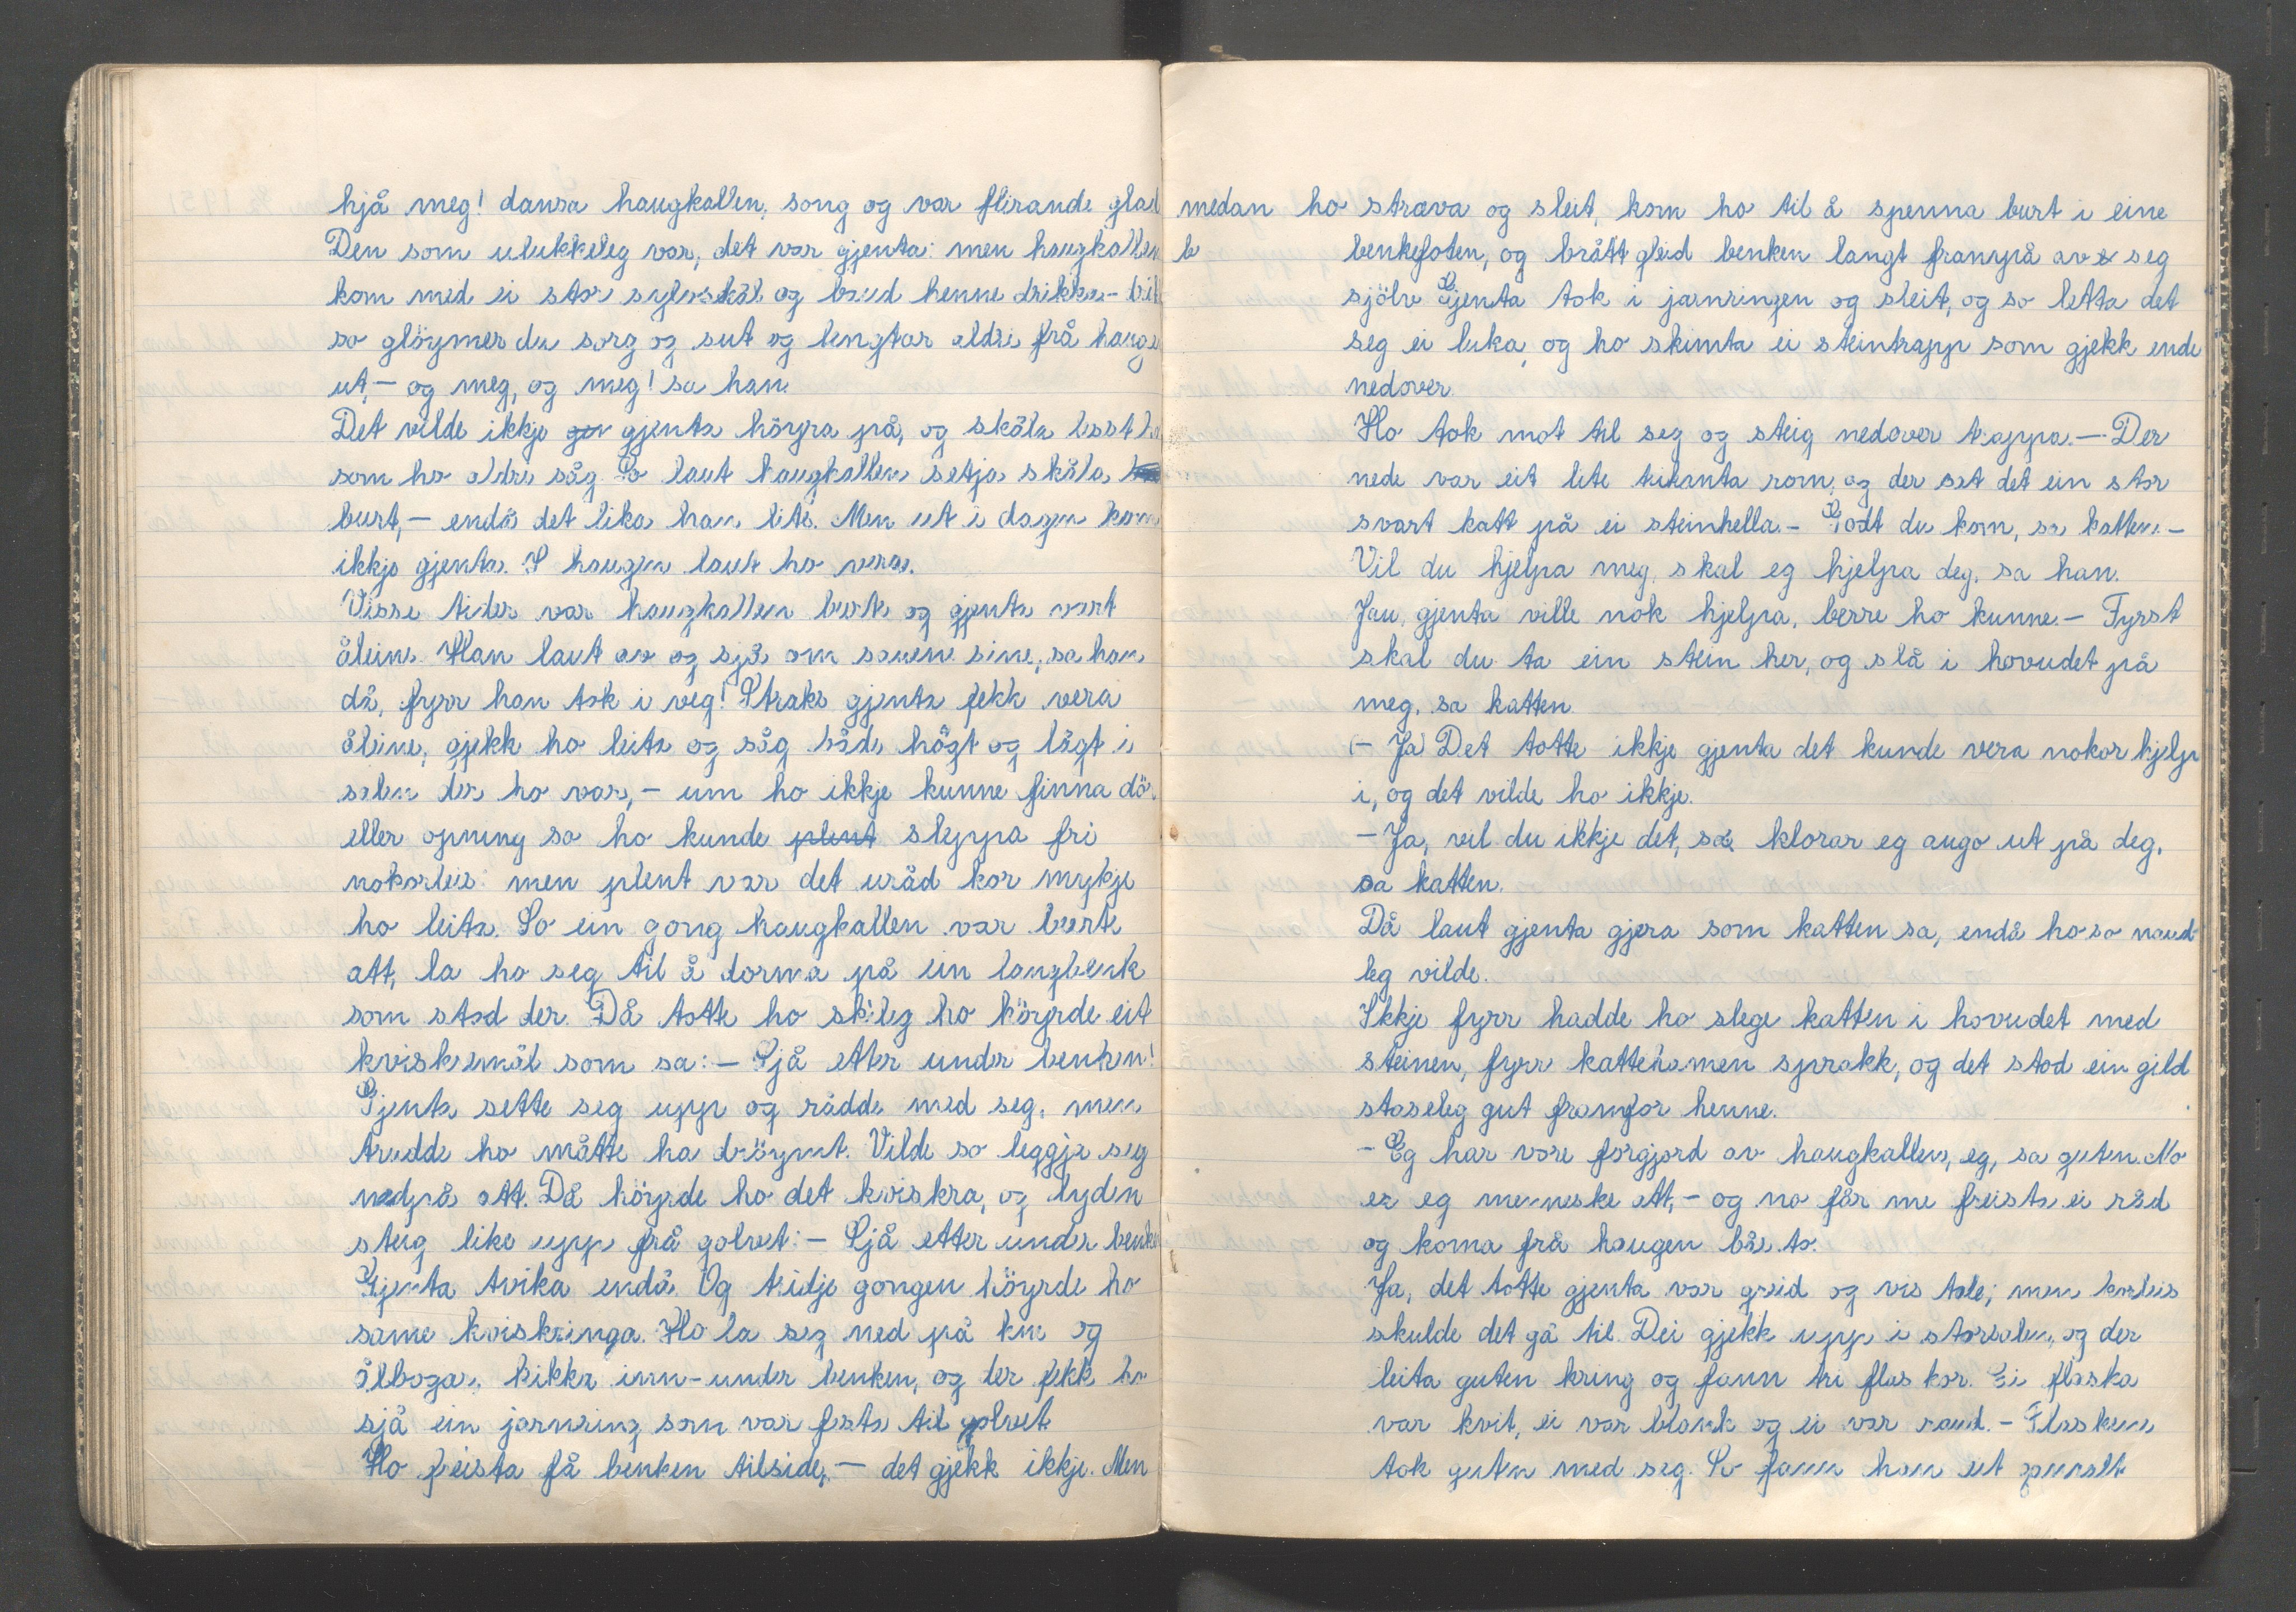 hjå meg! dansa haugkallen, song og var flirande glad
Den som ulukkeleg var, det var gjenta: men haugkallen
kom med ei stor sylvskål og baud henne drikka-
so glöymer du sorg og sut og lengtar aldri frå haugen
ut, - og meg, og meg! sa han.
Det vilde ikkje gjenta höyra på, og skåla lest
som ho aldri såg So laut haugkallen setja skåla
burt, - endå det lika han lite. Men ut i dagen kom
ikkje gjenta. I haugen laut ho vera.
Visse tider var haugkallen burte og gjenta vart
åleine. Han laut av og sjå om sauene sine, sa han
då, fyrr han tok i veg! Straks gjenta fekk vera
åleine, gjekk ho leita og såg både högt og lågt i
salen der ho var, - um ho ikkje kunne finna dör
eller opning so ho kunde plent sleppa fri
nokorleis: men plent var det uråd kor mykje
ho leita. So ein gong haugkallen var burte
att, la ho seg til å dorma på ein langbenk
som stod der. Då totte ho skileg ho höyrde eit
kviskremål som sa: - Sjå etter under benken!
Gjenta sette seg upp og rådde med seg, men
trudde ho måtte ha dröymt. Vilde so leggja seg
nedpå att. Då höyrde ho det kviskra, og lyden
steig like upp frå golvet: - Sjå etter under benken
Gjenta tvika endå. Og tridje gongen höyrde ho
same kviskringa. Ho la seg ned på kne og
ölbogar, kikka inn-under benken, og der fekk ho
sjå ein jarnring som var festa til golvet.
Ho freista få benken tilside, - det gjekk ikkje. Men
medan ho stræva og sleit, kom ho til å spenna burt i eine
b benkefoten, og brått gleid benken langt frampå av seg
sjölv Gjenta tok i jarnringen og sleit, og so letta det
seg ei luka, og ho skimta ei steintrapp som gjekk ende
nedover.
Ho tok mot til seg og steig nedover trappa. - Der
nede var eit lite trikanta rom, og der sat det ein stor
svart katt på ei steinhella. - Godt du kom, sa katten. -
Vil du hjelpa meg, skal eg hjelpa deg, sa han.
Jau, gjenta ville nok hjelpa, berre ho kunne. - Fyrst
skal du ta ein stein her, og slå i hovudet på
meg, sa katten.
(- Ja) Det totte ikkje gjenta det kunde vera nokor hjelp
i, og det vilde ho ikkje.
- Ja, vil du ikkje det, so klorar eg augo ut på deg,
sa katten.
Då laut gjenta gjera som katten sa, endå ho so naud-
leg vilde.
Ikkje fyrr hadde ho slege katten i hovudet med
steinen, fyrr kattehamen sprakk, og det stod ein gild
staseleg gut framfor henne.
- Eg har vore forgjord av haugkallen, eg, sa guten. No
er eg menneske att, - og no får me freista ei råd
og koma frå haugen båe to.
Ja, det totte gjenta var greid og vis tale; men korleis
skulde det gå til. Dei gjekk upp i storsalen, og der
leita guten kring og fann tri flaskor. Ei flaska
var kvit, ei var blank og ei var raud. - Flaskene
tok guten med seg. So fann han eit